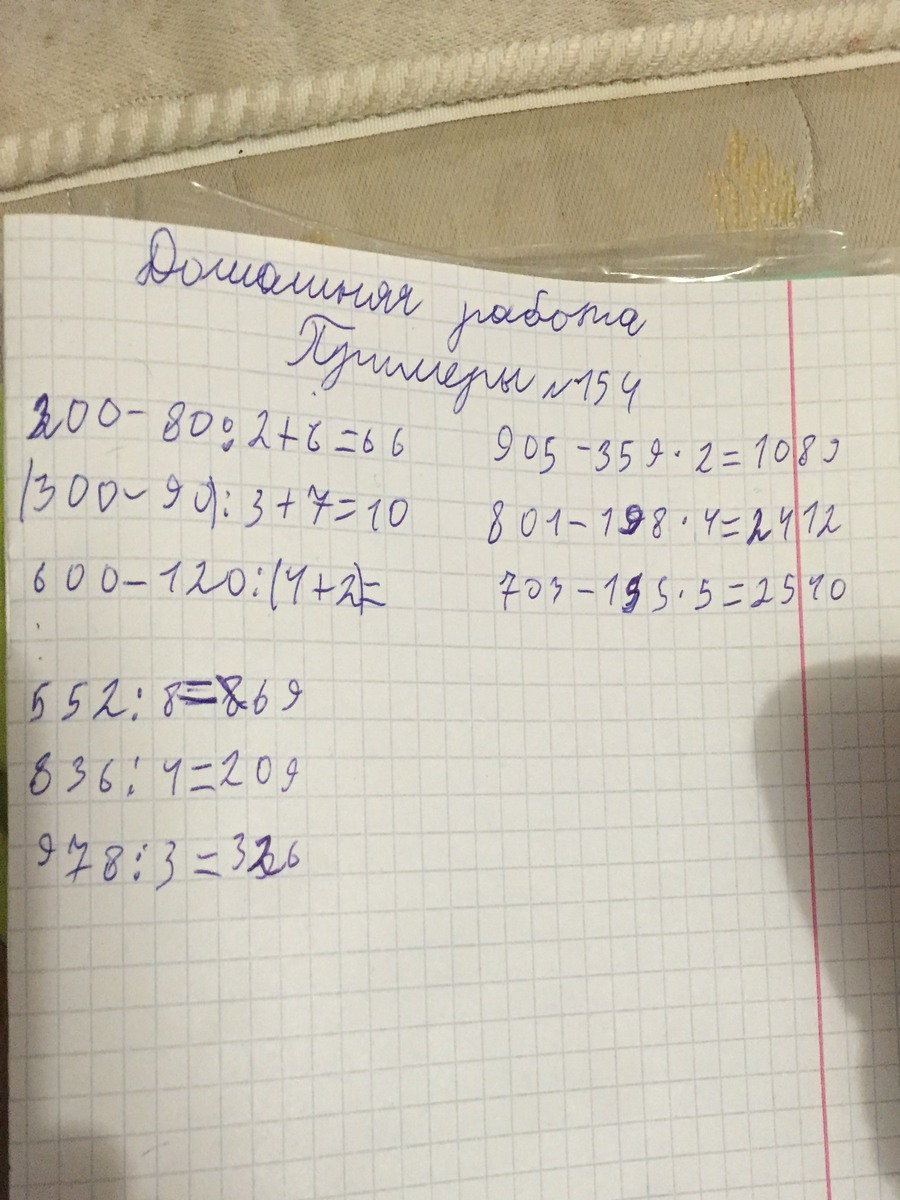 Домашняя работа
Примеры №154
200-80:2+6=66
(300-90):3+7=10
600-120:(4+2)=
905-359·2=1089
801-198·4=2412
703-195·5=2540
552:8=69
836:4=209
978:3=326